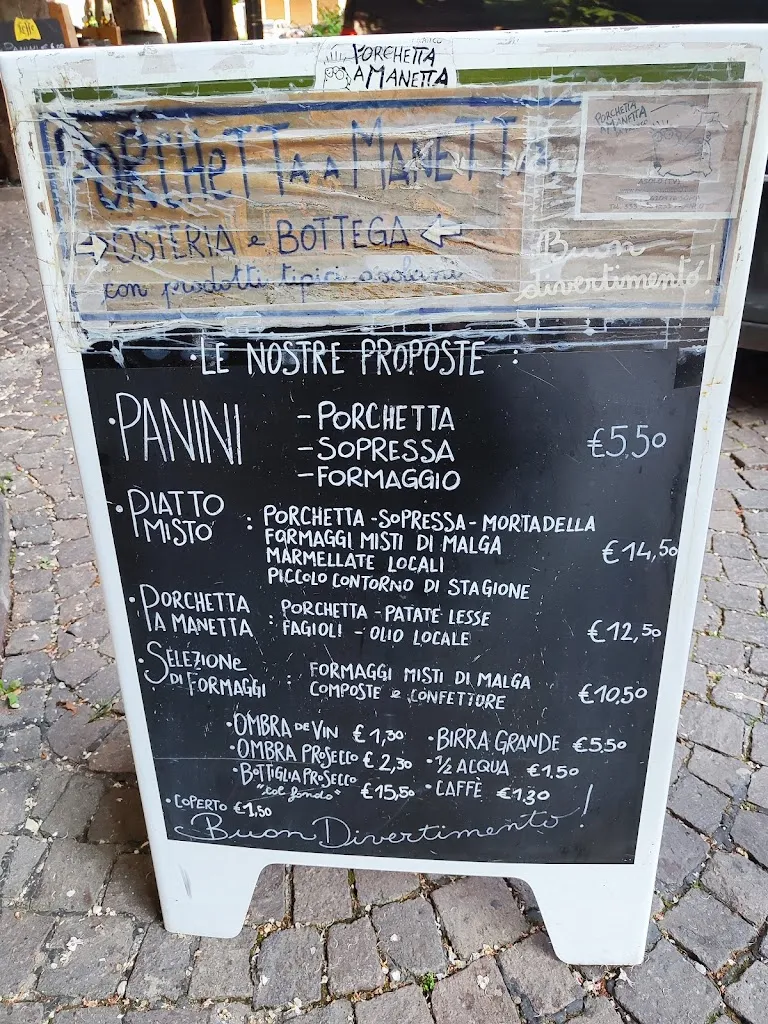 PORCHETTA
A MANETTA
PORCHETTA A MANETTA
PORCHETTA
A MANETTA
OSTERIA e BOTTEGA
con prodotti tipici asolani
Buon
divertimento!
• LE NOSTRE PROPOSTE :
• PANINI
- PORCHETTA
- SOPRESSA
- FORMAGGIO
€5,50
• PIATTO
MISTO :
PORCHETTA - SOPRESSA - MORTADELLA
FORMAGGI MISTI DI MALGA
MARMELLATE LOCALI
PICCOLO CONTORNO DI STAGIONE
€14,50
• PORCHETTA
A MANETTA :
PORCHETTA - PATATE LESSE
FAGIOLI - OLIO LOCALE
€12,50
• SELEZIONE
DI FORMAGGI :
FORMAGGI MISTI DI MALGA
COMPOSTE e CONFETTURE
€10,50
• OMBRA DE VIN €1,30
• OMBRA PROSECCO €2,30
• BOTTIGLIA PROSECCO
"col fondo" €15,50
• BIRRA GRANDE €5,50
• 1/2 ACQUA €1,50
• CAFFÈ €1,30
• COPERTO €1,50
Buon Divertimento!